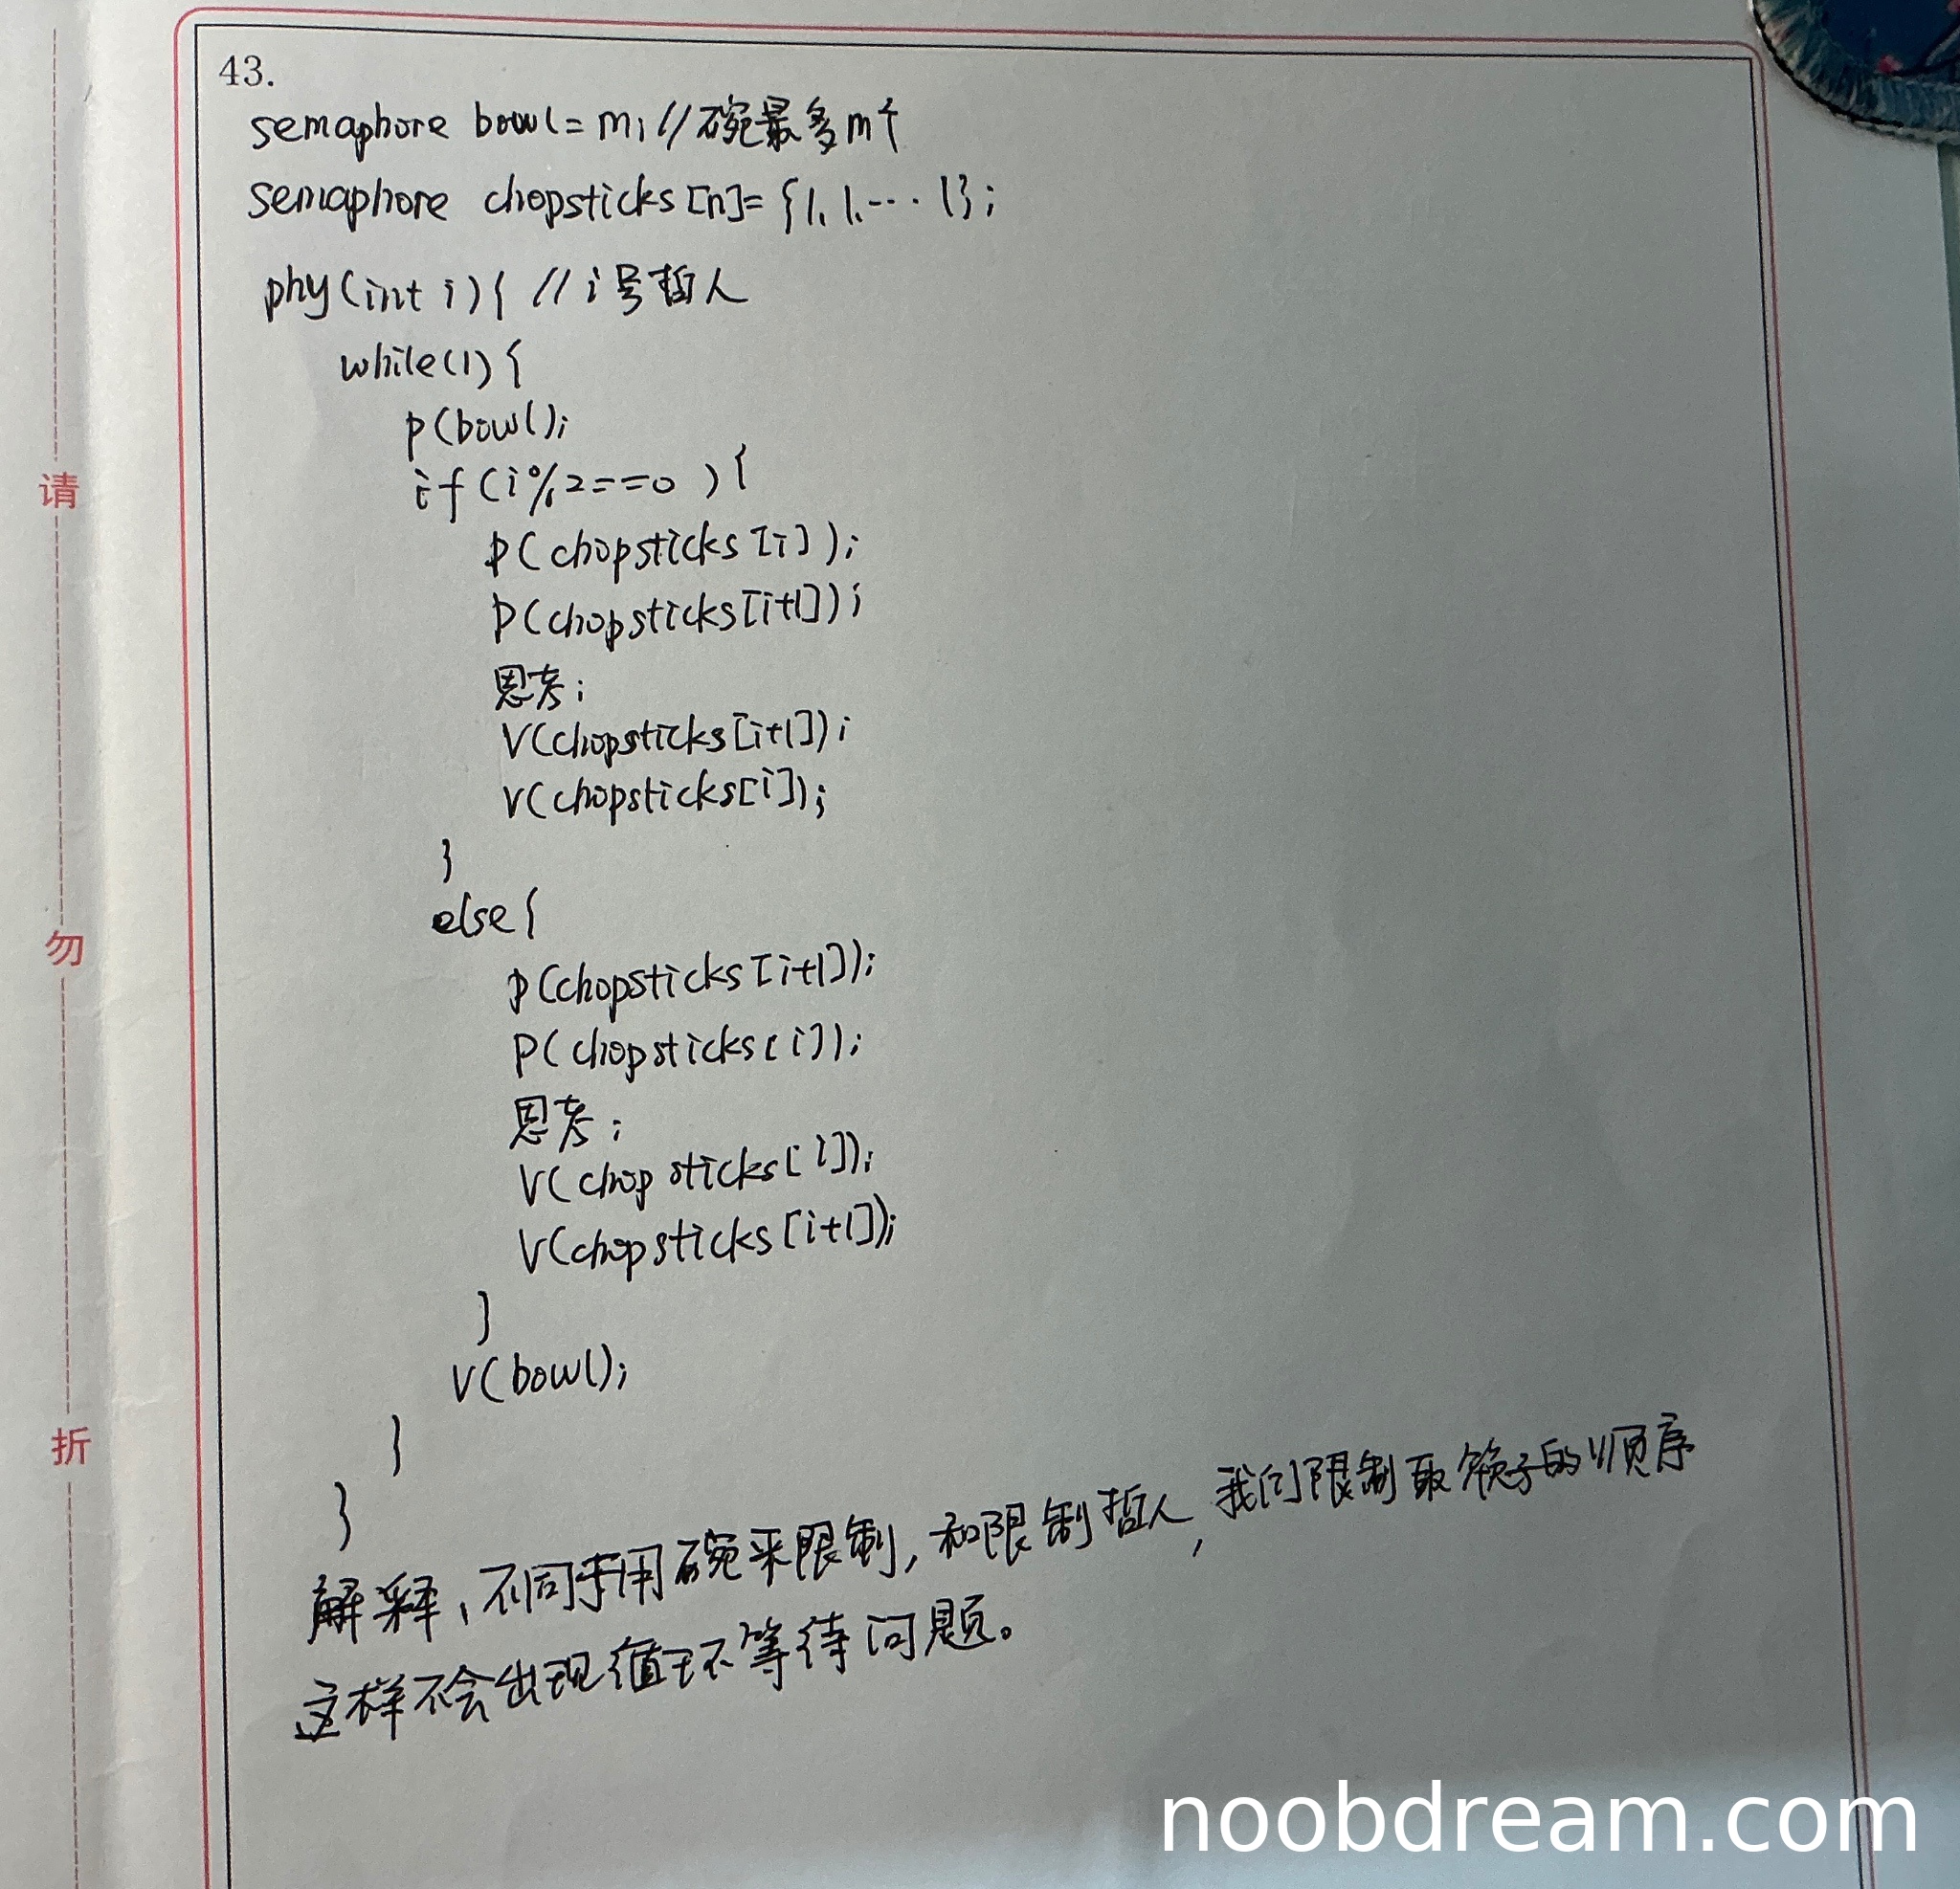 43.
semaphore bowl = m; //碗最多m个
semaphore chopsticks[n]= {1,1,...1};
phy(int i){ //i号哲人
while(1){
p(bowl);
if(i%2==0){
p(chopsticks[i]);
p(chopsticks[i+1]);
思考;
V(chopsticks[i+1]);
V(chopsticks[i]);
}
else{
p(chopsticks[i+1]);
P(chopsticks[i]);
思考;
V(chopsticks[i]);
V(chopsticks[i+1]);
}
V(bowl);
}
}
解释,不同于用碗来限制,和限制哲人,我们限制取筷子的顺序
这样不会出现循环等待问题。
请
勿
折
noobdream.com